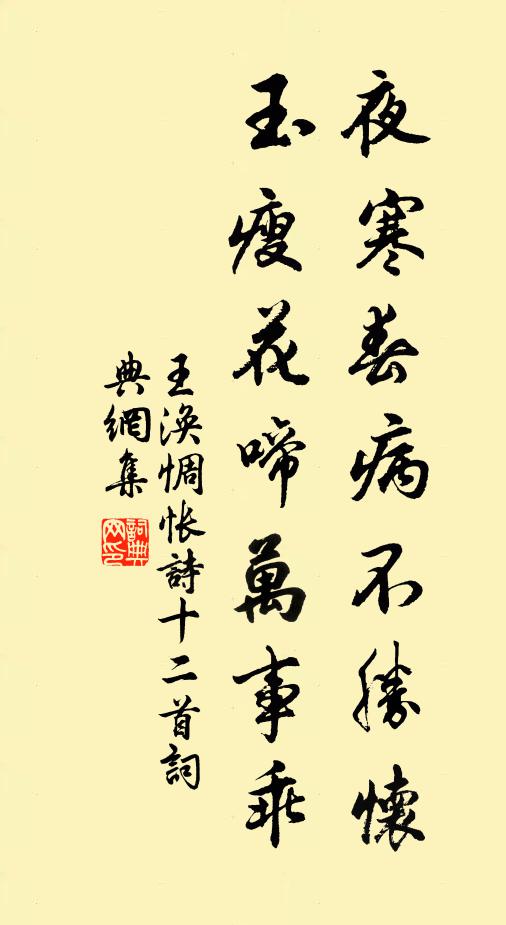 夜寒春病不勝懷
玉瘦花啼萬事乖
王渙惆悵詩十二首詞
典網集
詞典网印